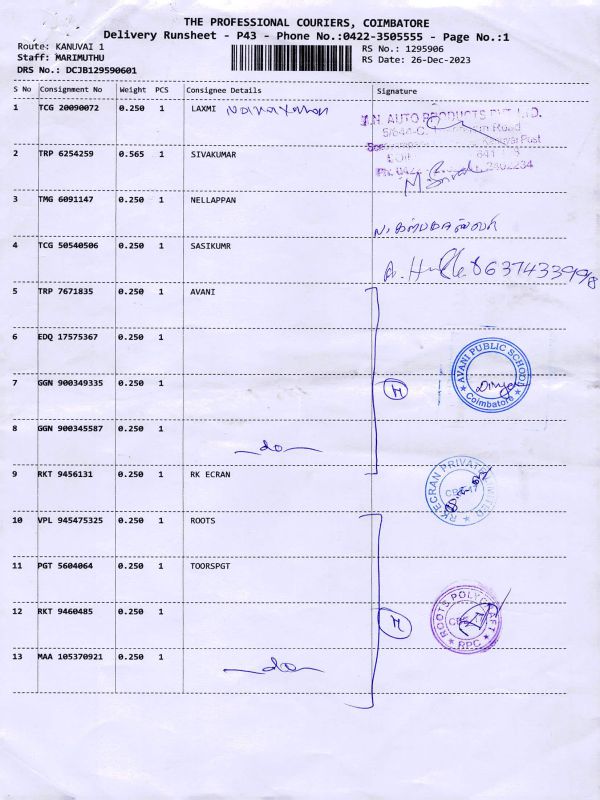 THE PROFESSIONAL COURIERS, COIMBATORE
Delivery Runsheet - P43 - Phone No.:0422-3505555 - Page No.:1
Route: KANUVAI 1 RS No.: 1295906
Staff: MARIMUTHU RS Date: 26-Dec-2023
DRS No.: DCJB129590601
S No Consignment No Weight PCS Consignee Details Signature
1 TCG 20090072 0.250 1 LAXMI Narayanan
AUTO PRODUCTS PVT. LTD.
Road
Post
2 TRP 6254259 0.565 1 SIVAKUMAR
3 TMG 6091147 0.250 1 NELLAPPAN
4 TCG 50540506 0.250 1 SASIKUMR
5 TRP 7671835 0.250 1 AVANI
6 EDQ 17575367 0.250 1
AVANI PUBLIC SCHOOL
Coimbatore
7 GGN 900349335 0.250 1
8 GGN 900345587 0.250 1
do
9 RKT 9456131 0.250 1 RK ECRAN
RK ECRAN PRIVATE LIMITED
CBE-17
10 VPL 945475325 0.250 1 ROOTS
11 PGT 5604064 0.250 1 TOORSPGT
12 RKT 9460485 0.250 1
ROOTS POLYCRAFT
RPC
13 MAA 105370921 0.250 1
do